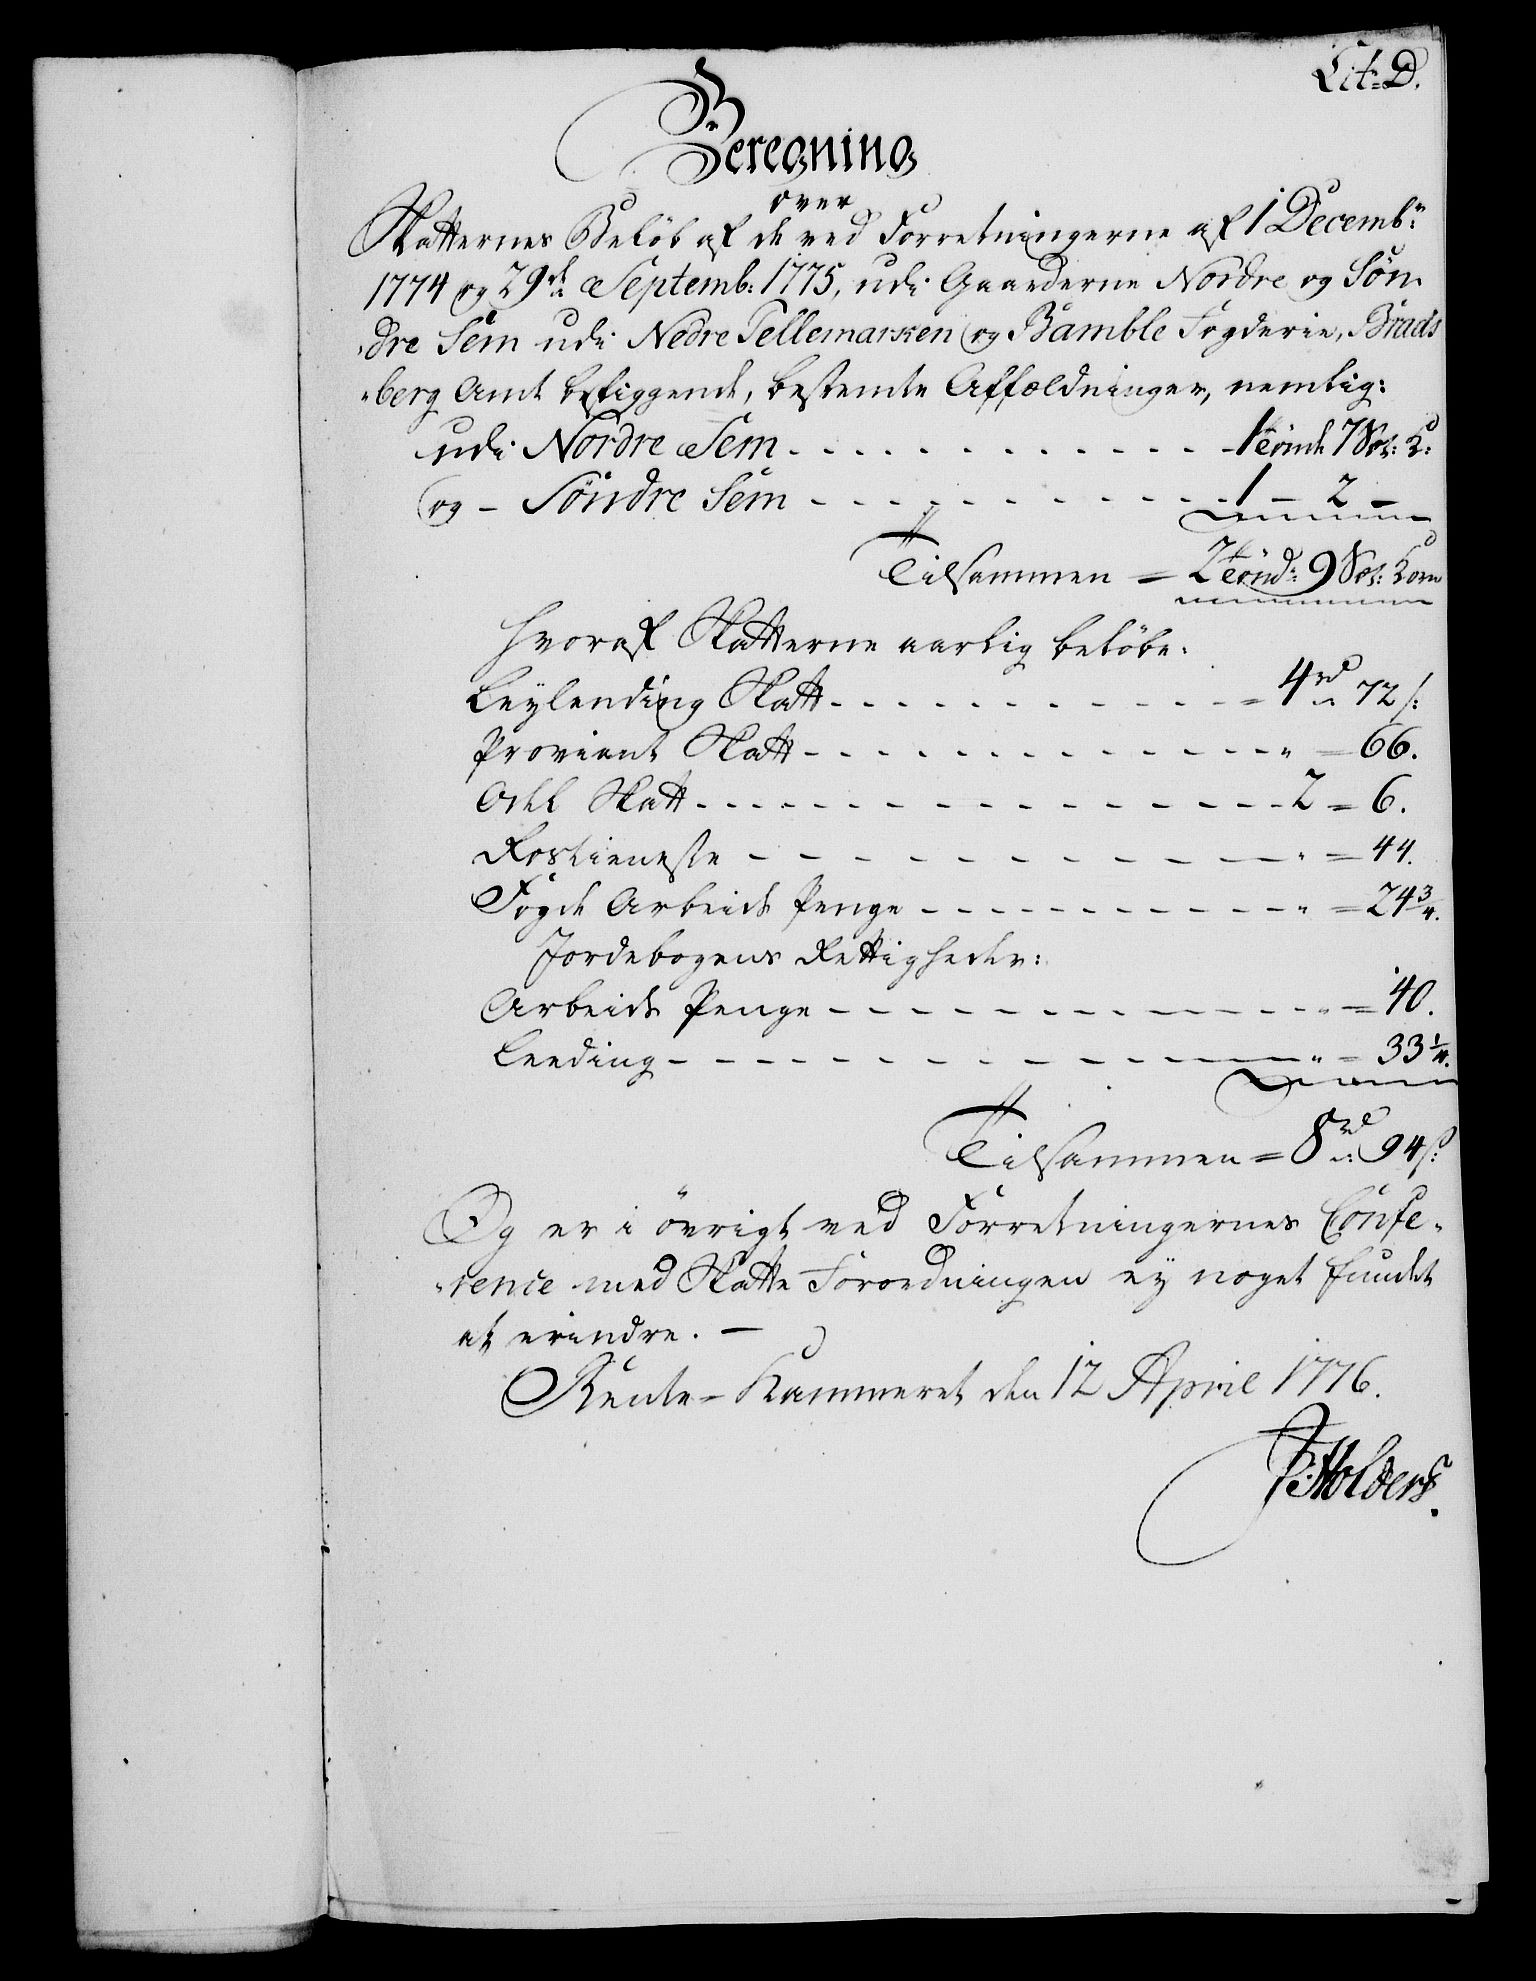 Lit: D.
Beregning
over
Skatternes Beløb af de ved Forretningerne af 1 Decemb:r
1774 og 29de Septemb: 1775, udi Gaarderne Nordre og Søn-
dre Sem udi Nedre Tellemarken og Bamble Fogderie, Brads
berg Amt beliggende, bestemte Affældninger, nemlig:
udi Nordre Sem - - - 1 tönde 7 Sæt: K:
og - Søndre Sem - - - 1 - 2 -
Tilsammen = 2 tönd: 9 Sæt: Korn
Hvoraf Skatterne aarlig beløbe:
Leylending Skatt - - - = 4 rd 72 s:
Proviant Skatt - - - " = 66.
Ostl Skatt - - - 2 = 6.
Rostieneste - - - " = 44.
Fogde Arbeids Penge - - - " = 24 3/4.
Jordebogens Rettigheder:
Arbeids Penge - - - " = 40.
Leeding - - - " = 33 1/4.
Tilsammen = 8 rd 94 s:
Og er i øvrigt ved Forretningernes Confe-
rence med Skatte Forordningen ey noget fundet
at erindre. -
Rente-Kammeret den 12 April 1776.